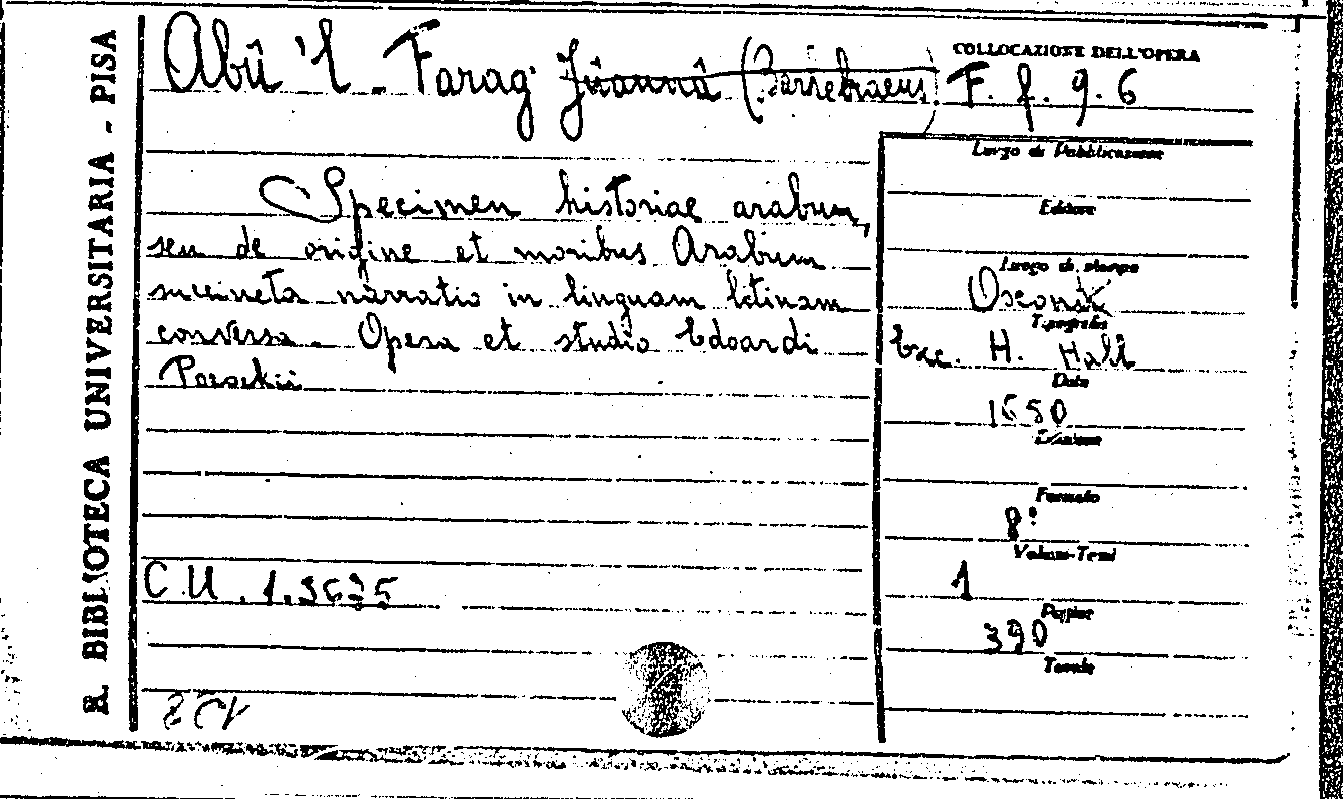 R. BIBLIOTECA UNIVERSITARIA - PISA
Abû 'l - Farag Jûannâ (Barrebraeus)
COLLOCAZIONE DELL'OPERA
F. f. 9. 6
Specimen historiae arabum,
seu de origine et moribus Arabum
succincta narratio in linguam latinam
conversa. Opera et studio Edoardi
Pocockii
Luogo di Pubblicazione
Editore
Luogo di stampa
Oxoniae
Tipografia
Exc. H. Hall
Data
1650
Edizione
Formato
8°
Volumi-Tomi
1
Pagine
390
Tavole
C.U. 1.3635